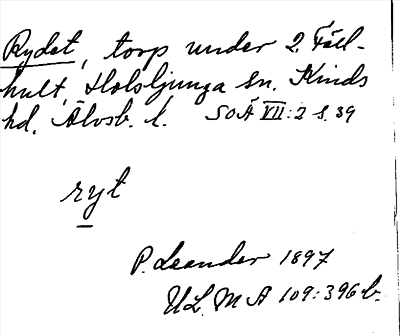 Rydet, torp under 2. Fäll-
hult, Holsljunga sn. Kinds
hd. Älvsb. l. SOÄ VII:2 s. 39
ryt
P. Leander 1897
ULMA 109:396 b.